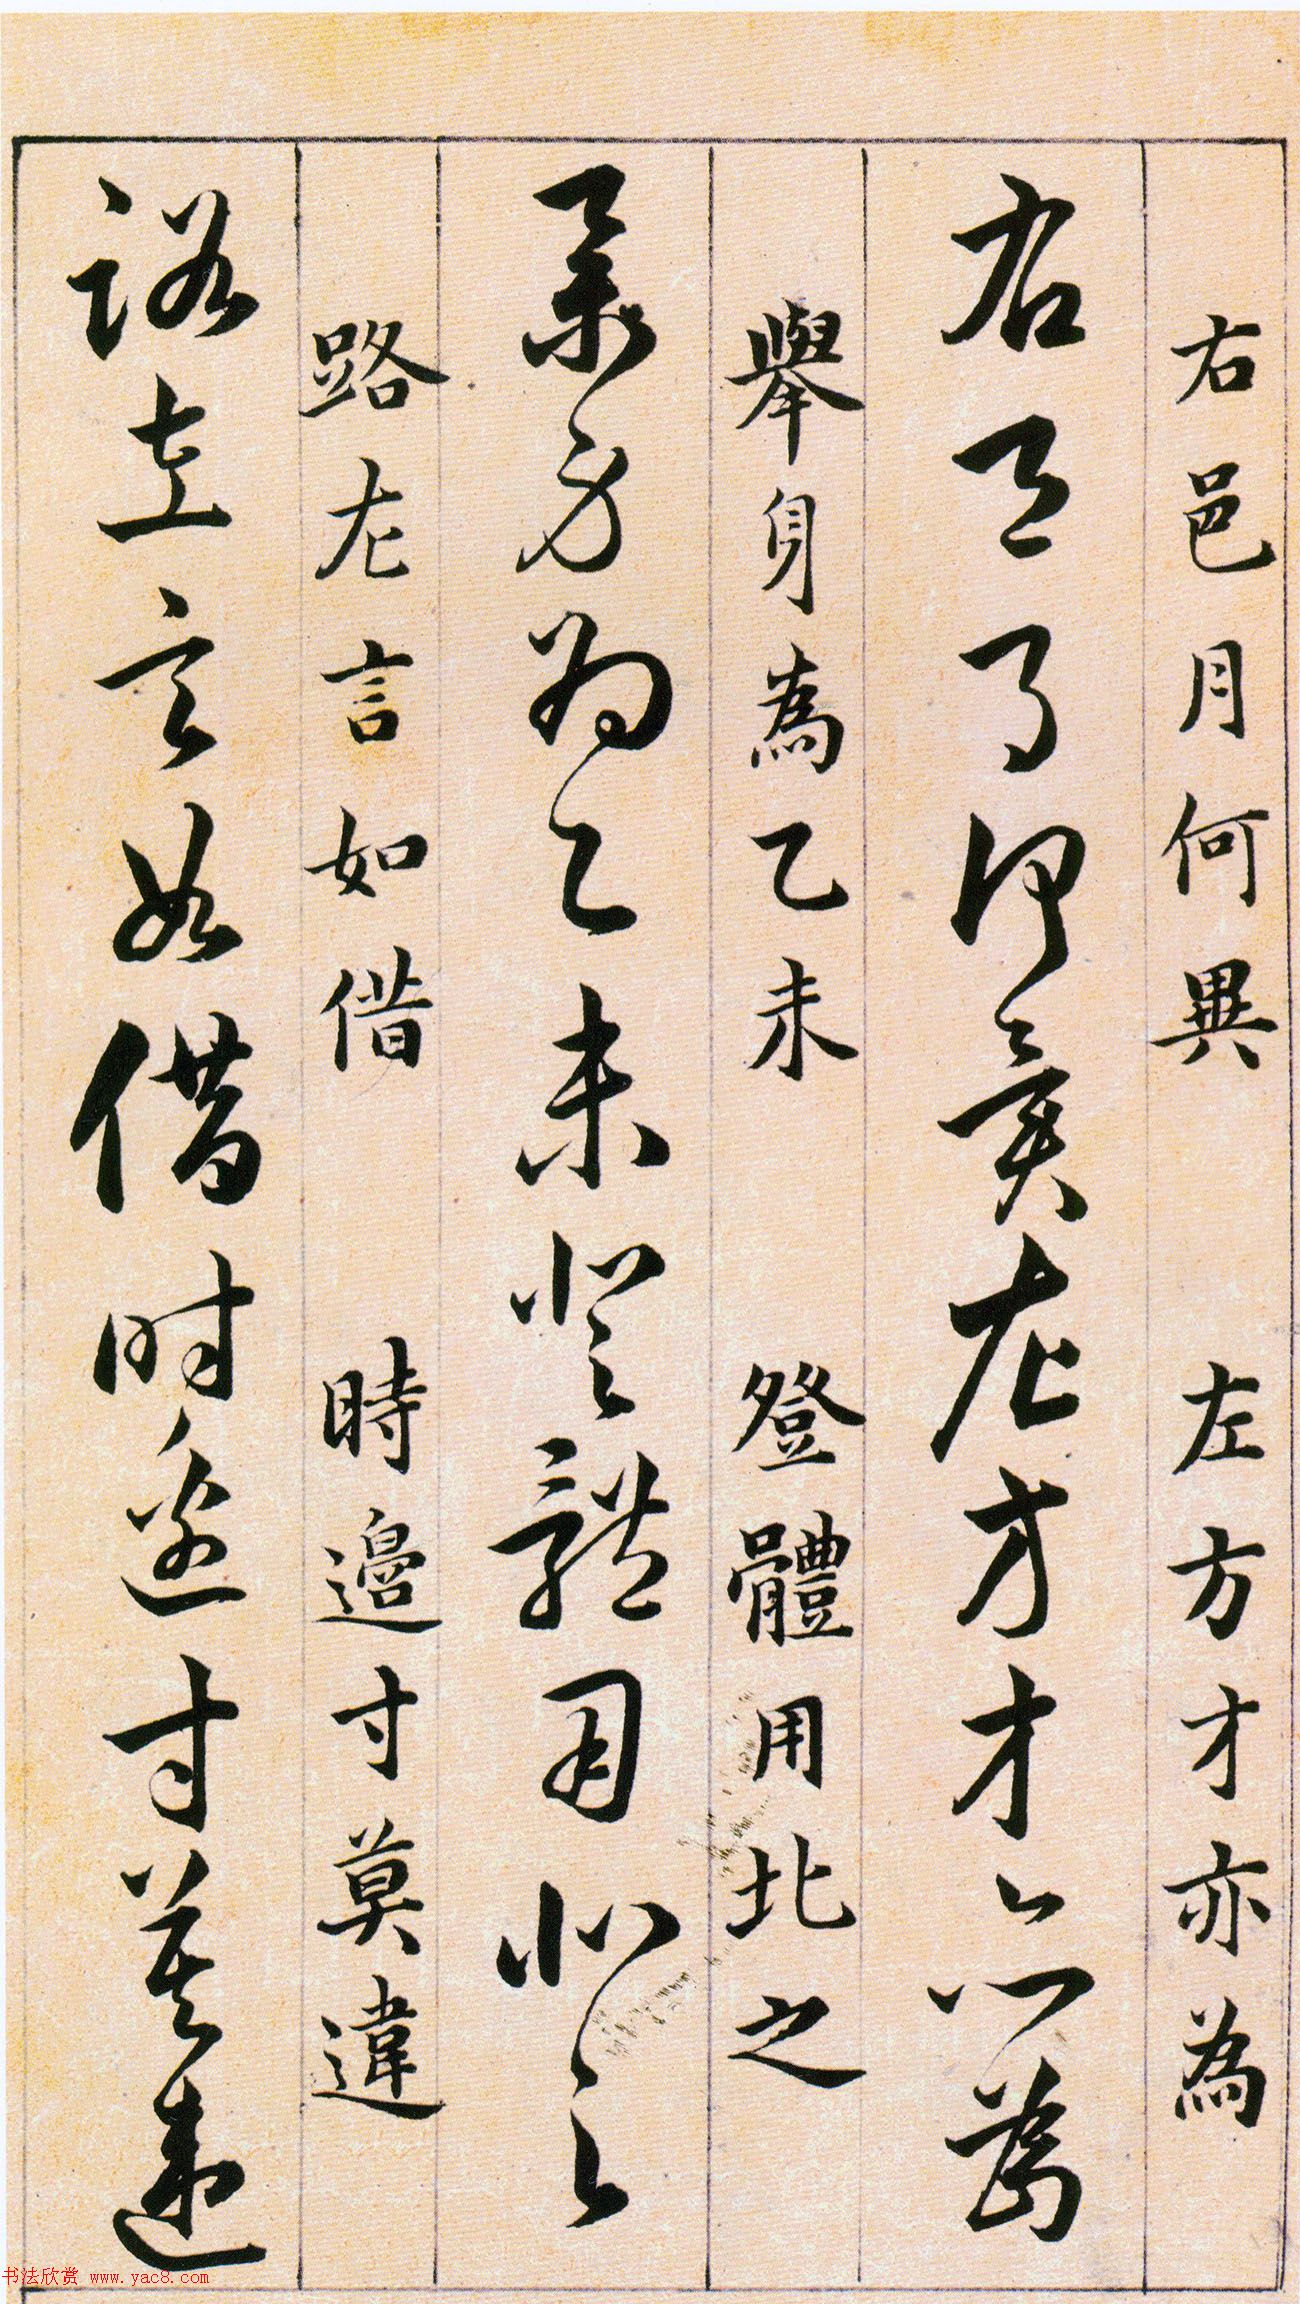 右邑月何異 左方才亦為
右邑月何異左方才亦為
舉身為乙未 登體用北之
舉身為乙未登體用北之
路左言如借 時邊寸莫違
路左言如借時邊寸莫違
书法欣赏 www.yac8.com